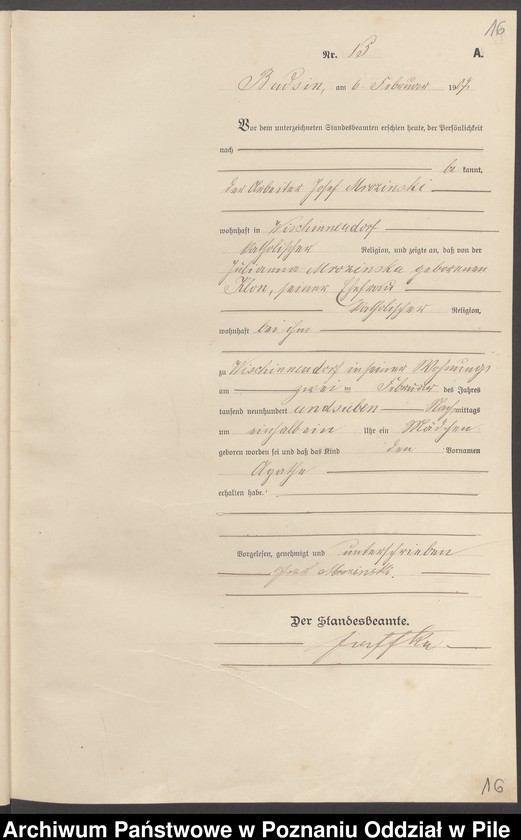 16
Nr. 15 A.
Budsin, am 6 Februar 1907.
Vor dem unterzeichneten Standesbeamten erschien heute, der Persönlichkeit
nach
be kannt,
der Arbeiter Josef Mrozinski
wohnhaft in Wischinnendorf
katholischer Religion, und zeigte an, daß von der
Julianna Mrozinska geborenen
Klon, seiner Ehefrau
katholischer Religion,
wohnhaft bei ihm
zu Wischinnendorf in seiner Wohnung
am zwei ten Februar des Jahres
tausend neunhundert und sieben Nach mittags
um einhalb ein Uhr ein Mädchen
geboren worden sei und daß das Kind den Vornamen
Agathe
erhalten habe.
Vorgelesen, genehmigt und unterschrieben
Josef Mrozinski.
Der Standesbeamte.
16
Archiwum Państwowe w Poznaniu Oddział w Pile